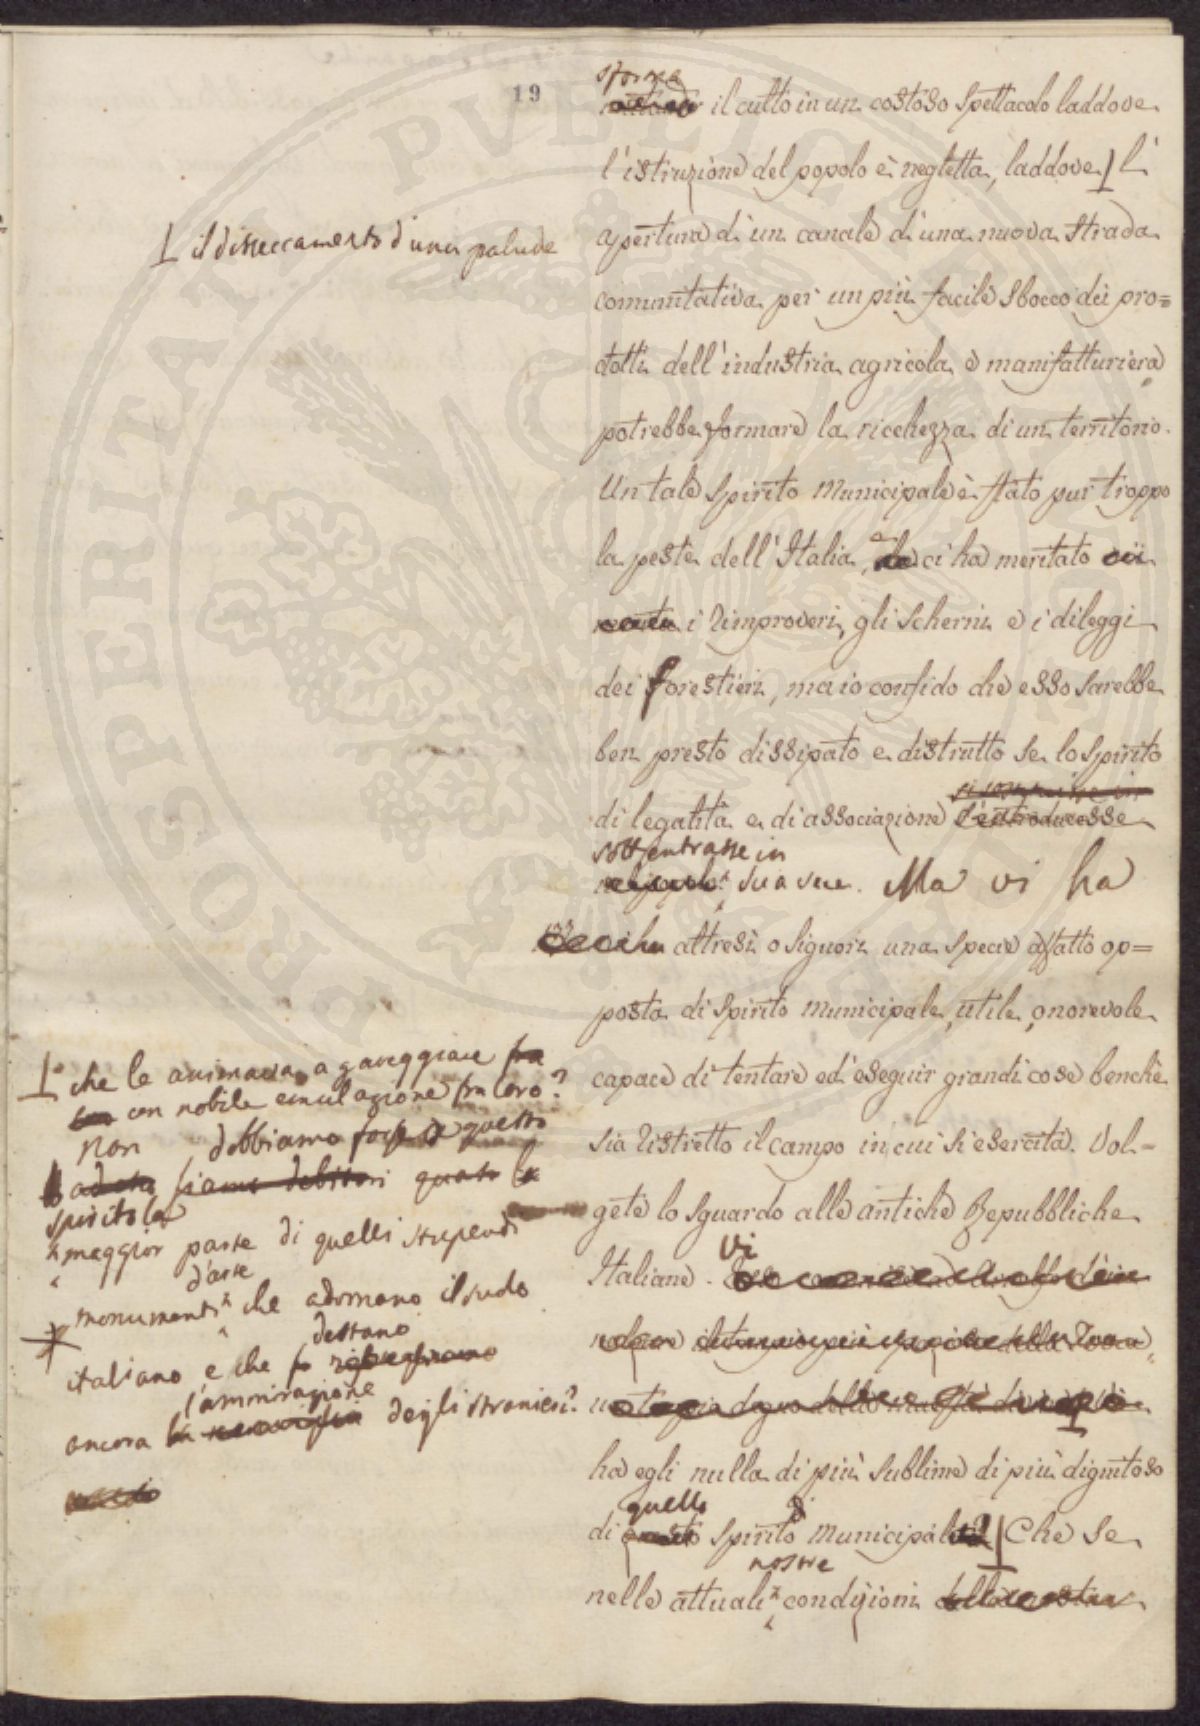 19
sforma
il culto in un costoso spettacolo laddove
l'istruzione del popolo è negletta, laddove l'
apertura di un canale di una nuova strada
⊥ il disseccamento d'una palude
comunitativa per un più facile sbocco dei pro=
dotti dell'industria agricola e manifatturiera
potrebbe formare la ricchezza di un territorio.
Un tale spirito Municipale è stato pur troppo
la peste dell'Italia, e ci ha meritato
i rimproveri, gli scherni e i dileggi
dei forestieri, ma io confido che esso sarebbe
ben presto dissipato e distrutto se lo spirito
di legalità e di associazione s'introducesse
sottentrasse in
sua vece. Ma vi ha
altresì o Signori una specie affatto op=
posta di spirito Municipale, utile, onorevole
capace di tentare ed eseguir grandi cose benchè
sia ristretto il campo in cui si esercita. Vol-
gete lo sguardo alle antiche Repubbliche
Italiane. Vi
ha egli nulla di più sublime di più dignitoso
quello
di questo spirito Municipale? Che se
nostre
nelle attuali condizioni
⊥ che le animava a gareggiare fra
con nobile emulazione fra loro?
Non dobbiamo forse a questo
siamo debitori
spirito la
maggior parte di quelli stupendi
d'arte
monumenti che adornano il suolo
destano
italiano e che
l'ammirazione
ancora la meraviglia degli stranieri?
PROSPERITATI PVBLICAE